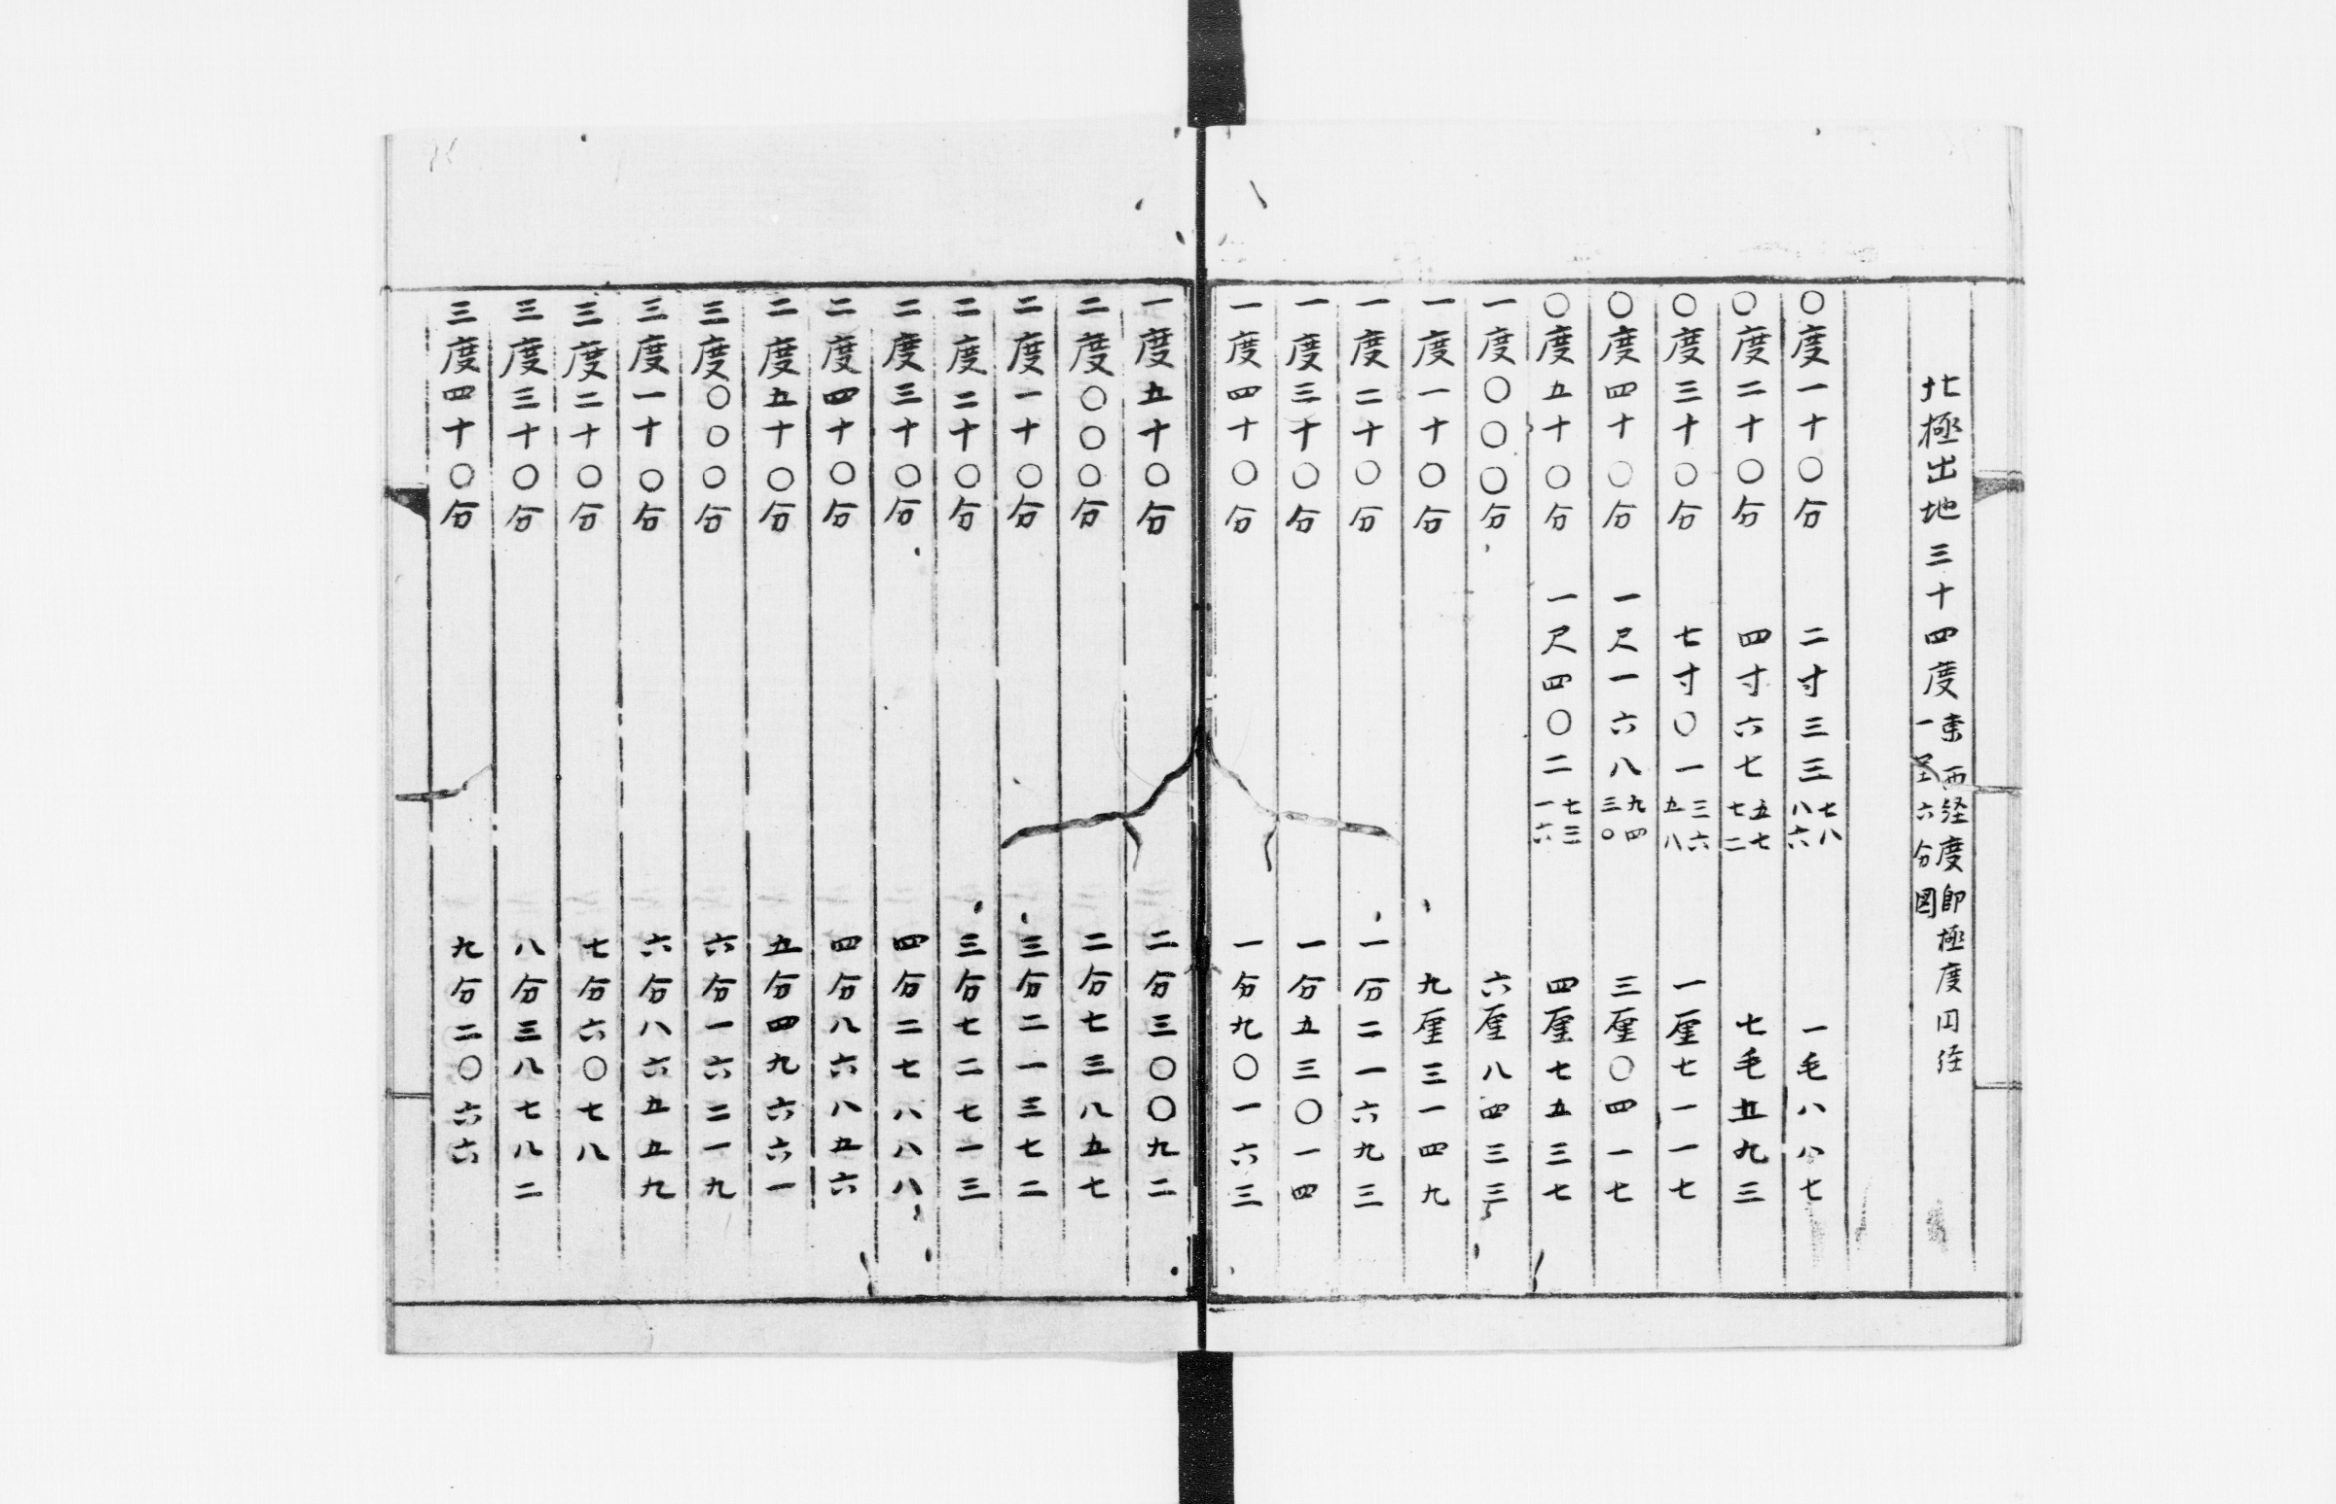 北極出地三十四度 東西経度即極度円径 一里六分図
〇度一十〇分 二寸三三七八八六 一毛八八七
〇度二十〇分 四寸六七五七七二 七毛五九三
〇度三十〇分 七寸〇一三六五八 一厘七一一七
〇度四十〇分 一尺一六八九四三〇 三厘〇四一七
〇度五十〇分 一尺四〇二七三一六 四厘七五三七
一度〇〇〇分 六厘八四三三
一度一十〇分 九厘三一四九
一度二十〇分 一分二一六九三
一度三十〇分 一分五三〇一四
一度四十〇分 一分九〇一六三
一度五十〇分 二分三〇〇九二
二度〇〇〇分 二分七三八五七
二度一十〇分 三分二一三七二
二度二十〇分 三分七二七一三
二度三十〇分 四分二七八八八
二度四十〇分 四分八六八五六
二度五十〇分 五分四九六六一
三度〇〇〇分 六分一六二一九
三度一十〇分 六分八六五五九
三度二十〇分 七分六〇七八
三度三十〇分 八分三八七八二
三度四十〇分 九分二〇六六